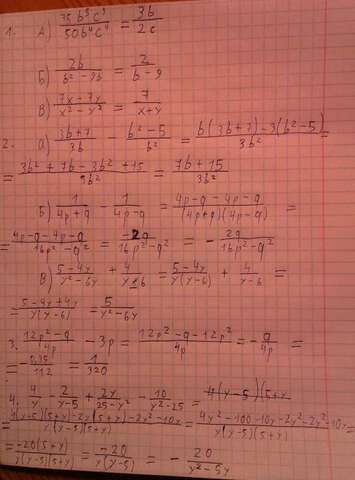 1. А) 75b⁵c³/50b⁴c⁴ = 3b/2c
Б) 2b/(b² - 9b) = 2/(b - 9)
В) (7x - 7y)/(x² - y²) = 7/(x+y)
2. а) (3b+7)/3b - (b² - 5)/b² = (b(3b+7) - 3(b² - 5))/3b² =
= (3b² + 7b - 3b² + 15)/9b² = (7b + 15)/3b²
Б) 1/(4p+q) - 1/(4p-q) = (4p - q - 4p - q)/((4p+q)(4p-q)) =
= (4p - q - 4p - q)/(16p² - q²) = -2q/(16p² - q²) = - 2q/(16p² - q²)
В) (5-4y)/(y² - 6y) + 4/(y-6) = (5-4y)/(y(y-6)) + 4/(y-6) =
= (5-4y+4y)/(y(y-6)) = 5/(y² - 6y)
3. (12p² - q)/4p - 3p = (12p² - q - 12p²)/4p = - q/4p =
4. 4/y - 2/(y-5) + 2y/(25-y²) - 10/(y² - 25) =
= (4(y-5)(5+y) - 2y(5+y) - 2y² - 10y)/(y(y-5)(5+y)) = (4y² - 100 - 10y - 2y² - 2y² - 10y)/(y(y-5)(5+y)) =
= -20(5+y)/(y(y-5)(5+y)) = -20/(y(y-5)) = - 20/(y² - 5y)